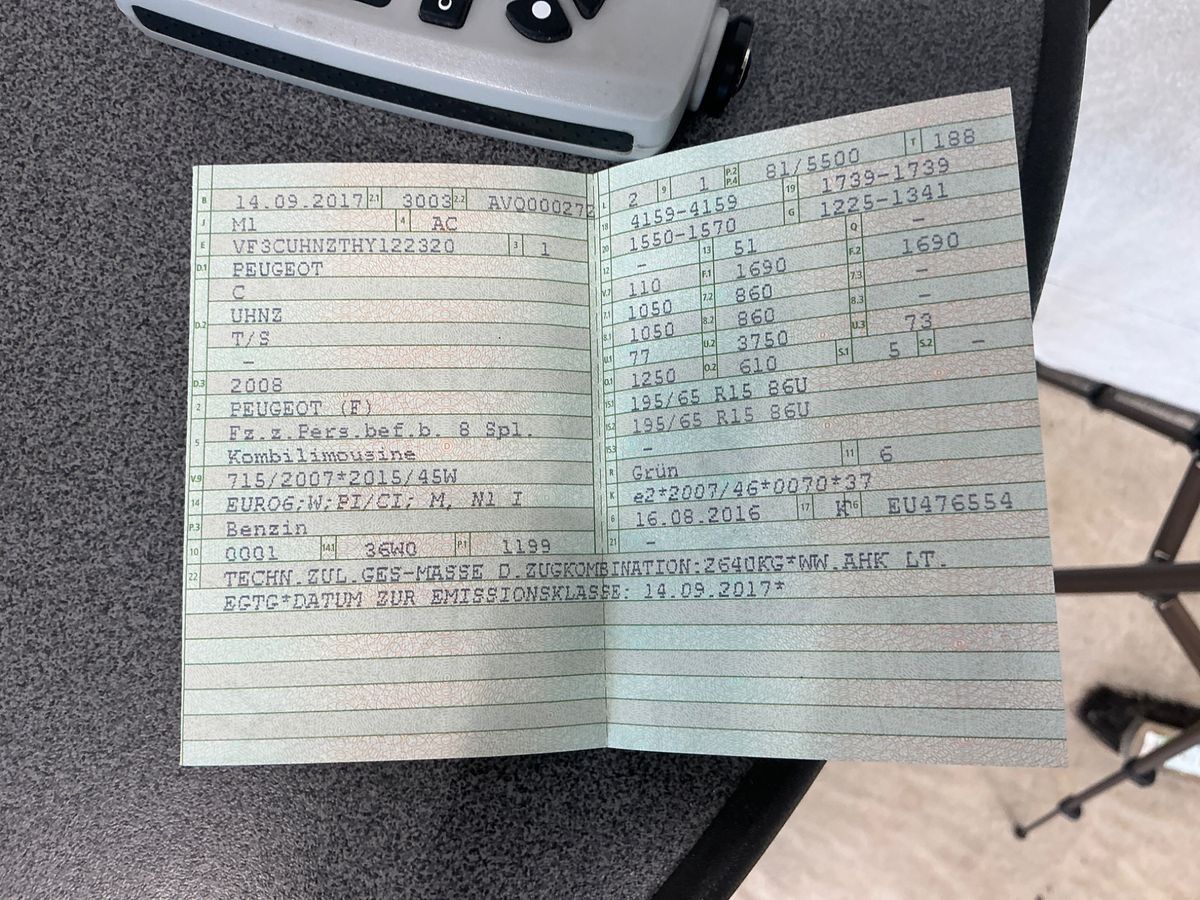 B 14.09.2017 2.1 3003 2.2 AVQ000272
J M1 4 AC
E VF3CUHNZTHY122320 3 1
D.1 PEUGEOT
C
D.2 UHNZ
T/S
–
D.3 2008
2 PEUGEOT (F)
5 Fz.z.Pers.bef.b. 8 Spl.
Kombilimousine
V.9 715/2007*2015/45W
14 EURO6;W;PI/CI; M, N1 I
P.3 Benzin
10 0001 14.1 36W0 P.1 1199
L 2 9 1 P.2 P.4 81/5500 T 188
18 4159-4159 19 1739-1739
20 1550-1570 G 1225-1341
12 – 13 51 Q –
V.7 110 F.1 1690 F.2 1690
7.1 1050 7.2 860 7.3 –
8.1 1050 8.2 860 8.3 –
U.1 77 U.2 3750 U.3 73
O.1 1250 O.2 610 S.1 5 S.2 –
15.1 195/65 R15 86U
15.2 195/65 R15 86U
15.3 –
R Grün 11 6
K e2*2007/46*0070*37
6 16.08.2016 17 K 16 EU476554
21 –
22 TECHN.ZUL.GES-MASSE D.ZUGKOMBINATION:2640KG*WW.AHK LT.
EGTG*DATUM ZUR EMISSIONSKLASSE: 14.09.2017*